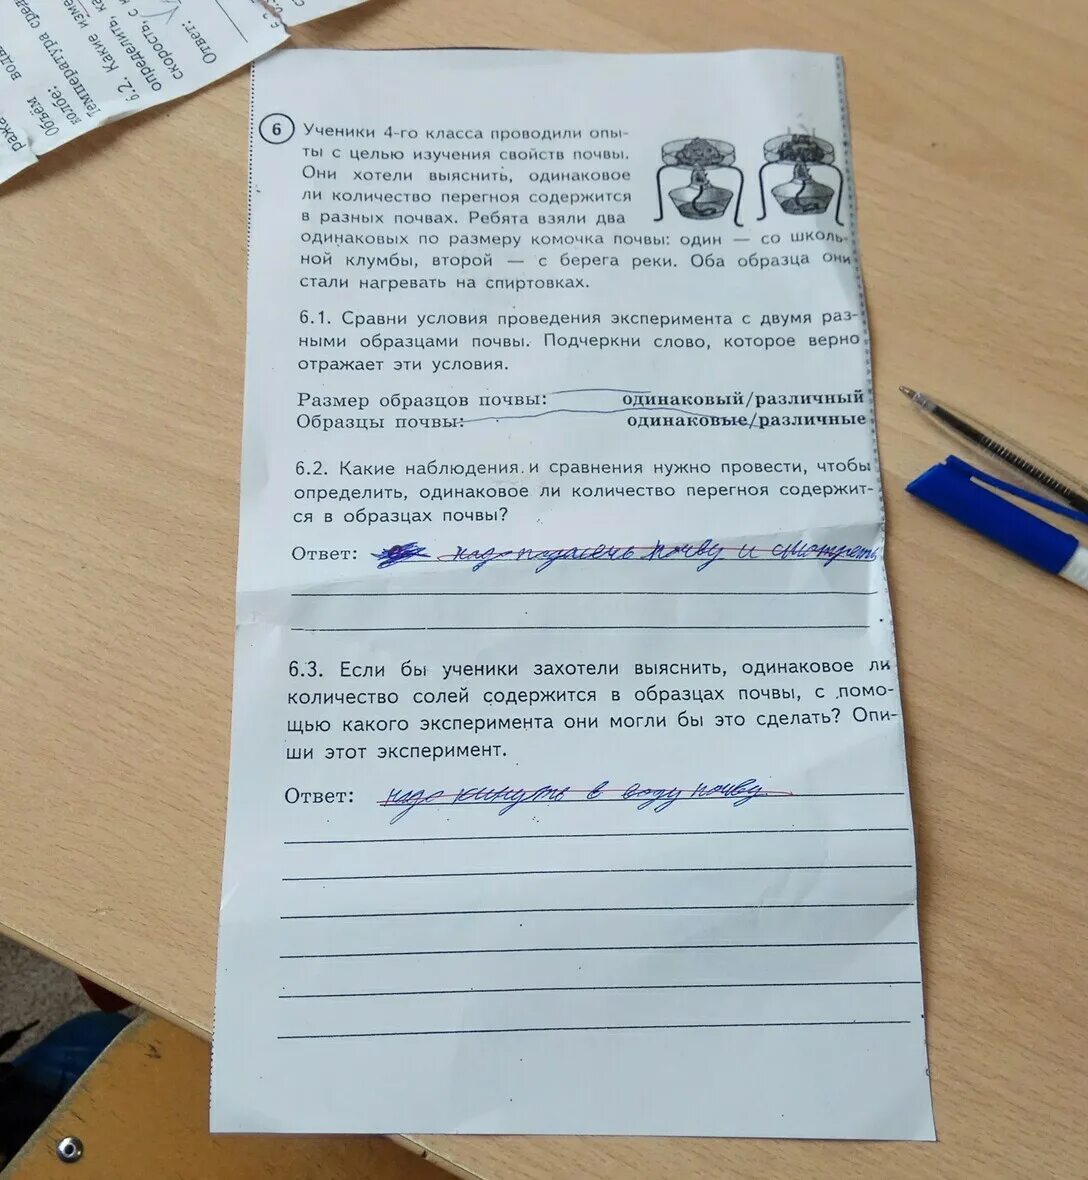 ража
воды
Температура сред
колбе:
Объём
6.2. Какие изме
определить, ка
скорость, с к
Ответ:
6 Ученики 4-го класса проводили опы-
ты с целью изучения свойств почвы.
Они хотели выяснить, одинаковое
ли количество перегноя содержится
в разных почвах. Ребята взяли два
одинаковых по размеру комочка почвы: один — со школь-
ной клумбы, второй — с берега реки. Оба образца они
стали нагревать на спиртовках.
6.1. Сравни условия проведения эксперимента с двумя раз-
ными образцами почвы. Подчеркни слово, которое верно
отражает эти условия.
Размер образцов почвы: одинаковый/различный
Образцы почвы: одинаковые/различные
6.2. Какие наблюдения и сравнения нужно провести, чтобы
определить, одинаковое ли количество перегноя содержит-
ся в образцах почвы?
Ответ: надо почву и смотреть
6.3. Если бы ученики захотели выяснить, одинаковое ли
количество солей содержится в образцах почвы, с помо-
щью какого эксперимента они могли бы это сделать? Опи-
ши этот эксперимент.
Ответ: надо кинуть в воду почву